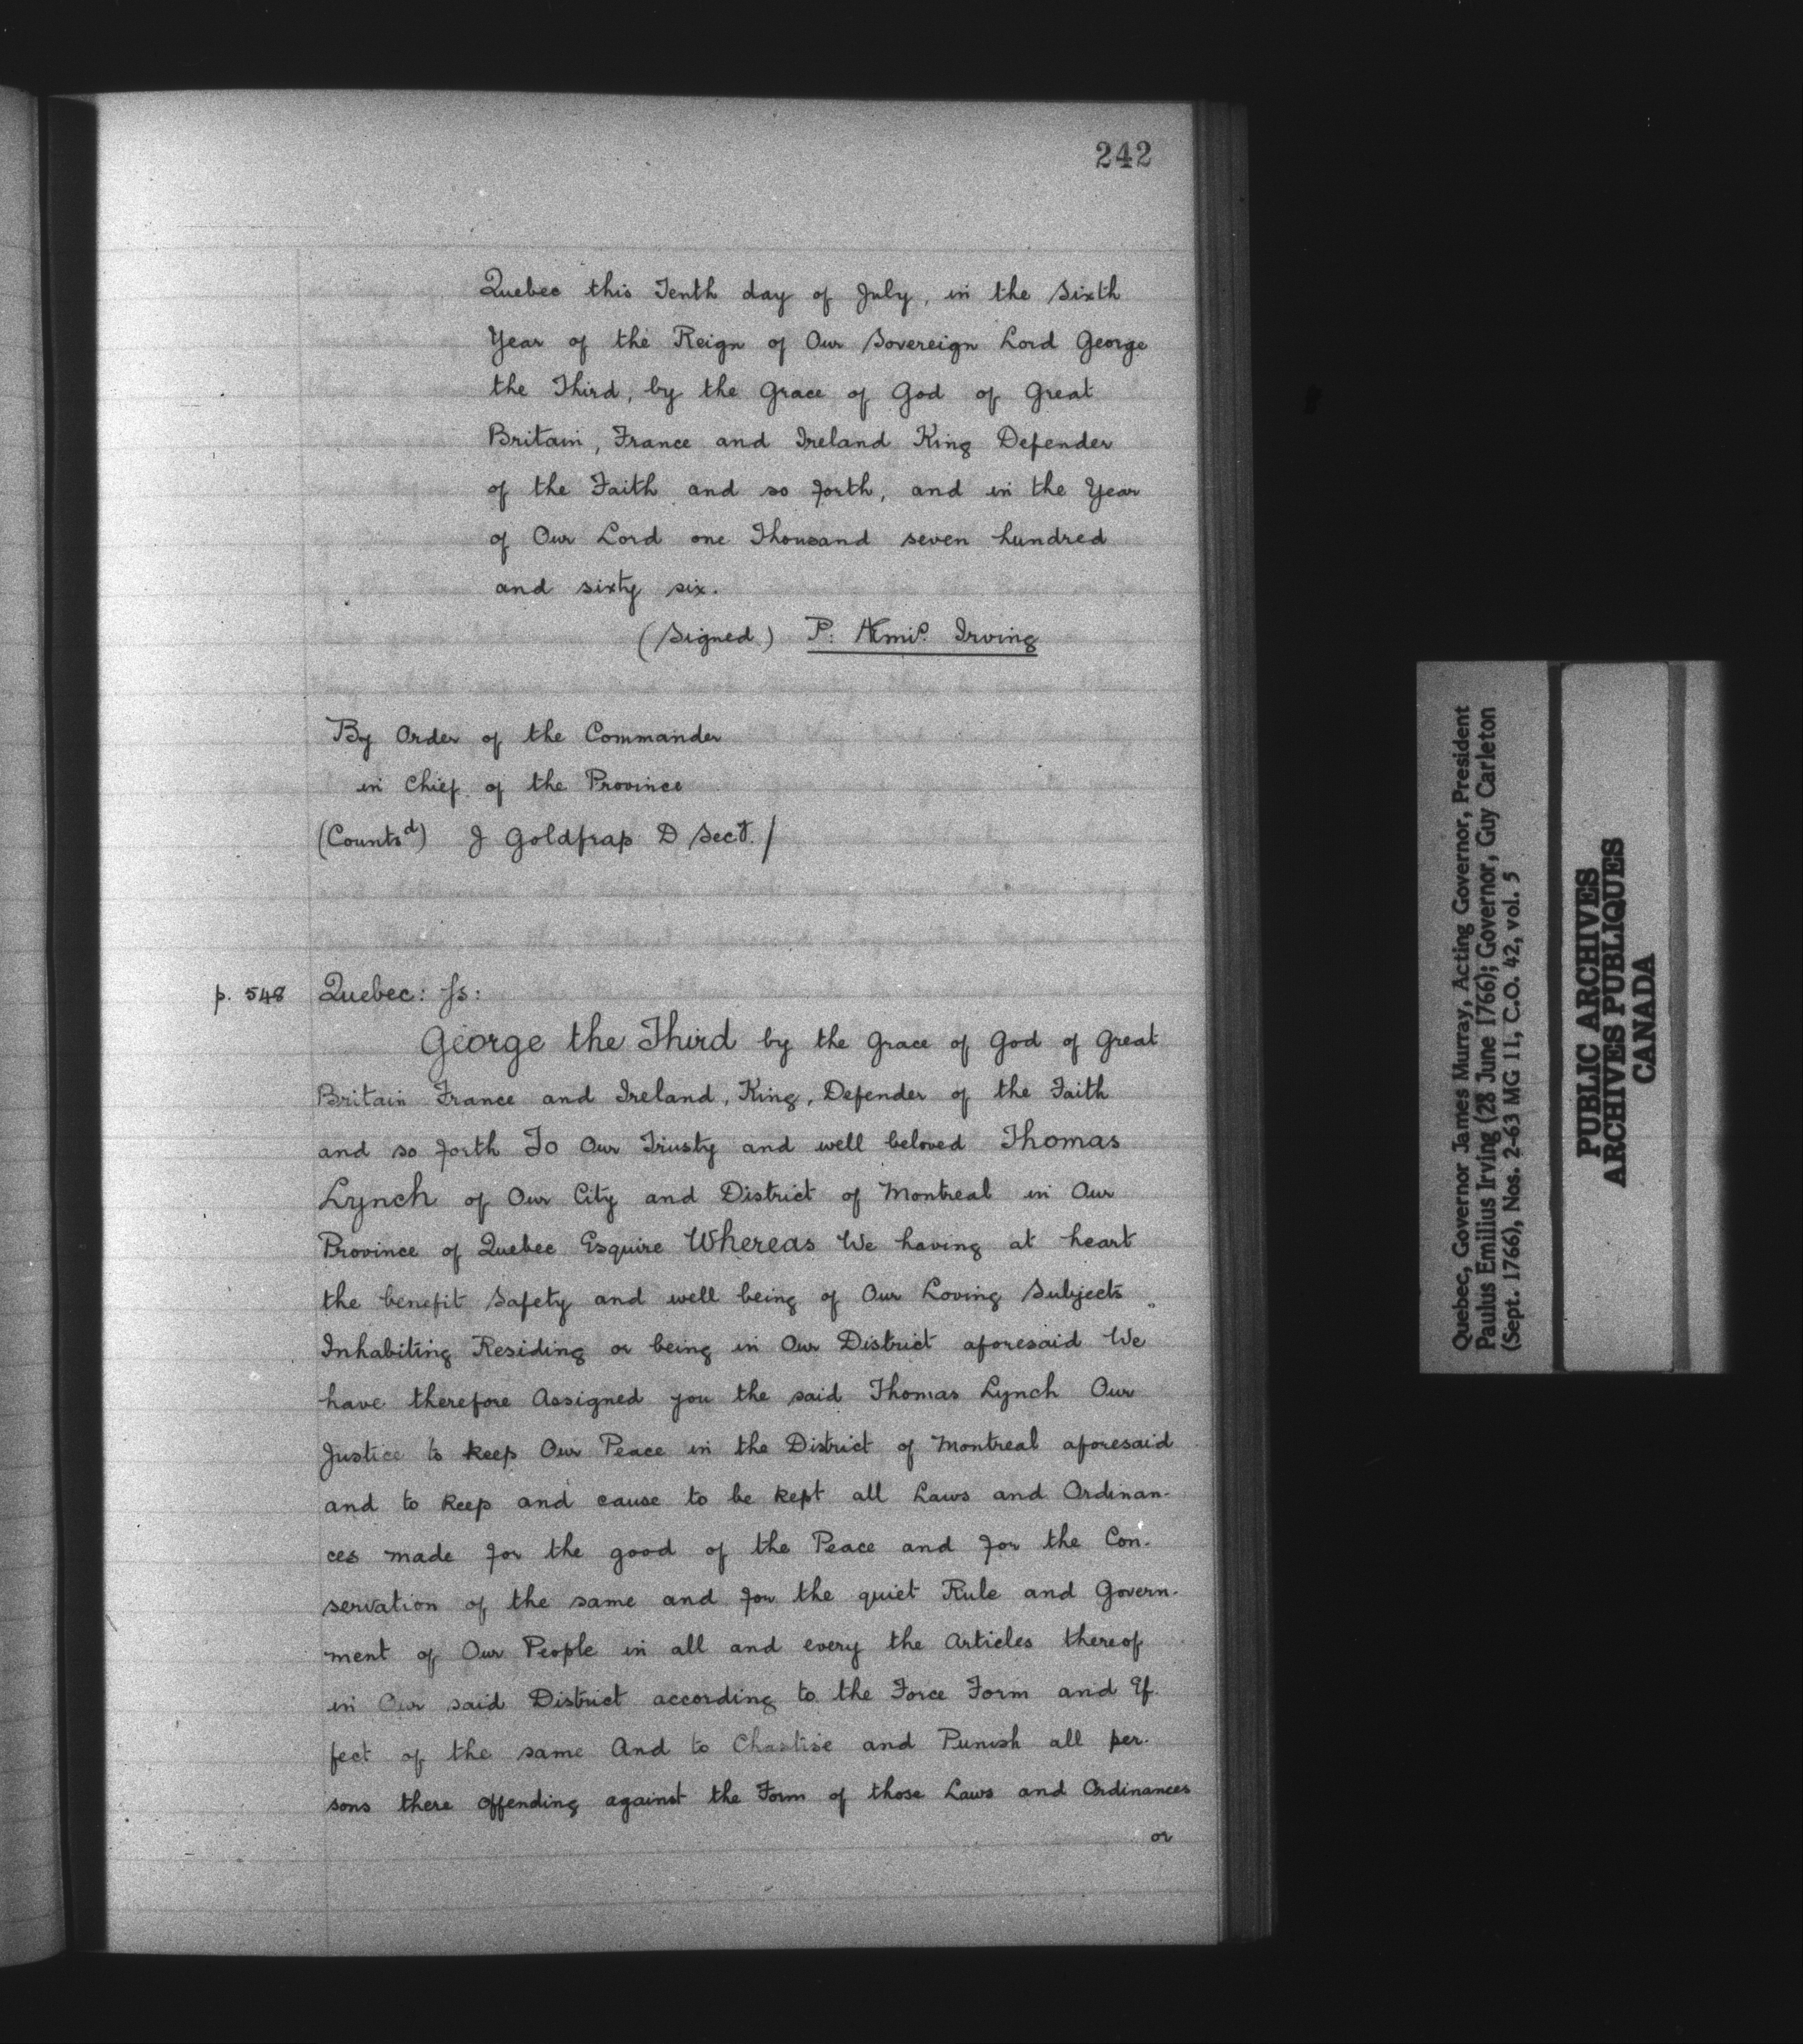 242
Quebec this Tenth day of July, in the Sixth
Year of the Reign of Our Sovereign Lord George
the Third, by the Grace of God of Great
Britain, France and Ireland King Defender
of the Faith and so forth, and in the Year
of Our Lord one Thousand seven hundred
and sixty six.
(Signed) P: Æmis. Irving
By Order of the Commander
in Chief of the Province
(Countsd) J Goldfrap D Secy. /
p. 548 Quebec: ss:
George the Third by the Grace of God of Great
Britain France and Ireland, King, Defender of the Faith
and so forth To Our Trusty and well beloved Thomas
Lynch of Our City and District of Montreal in Our
Province of Quebec Esquire Whereas We having at heart
the benefit Safety and well being of Our Loving Subjects
Inhabiting Residing or being in Our District aforesaid We
have therefore Assigned you the said Thomas Lynch Our
Justice to keep Our Peace in the District of Montreal aforesaid
and to keep and cause to be kept all Laws and Ordinan-
ces made for the good of the Peace and for the Con-
servation of the same and for the quiet Rule and Govern-
ment of Our People in all and every the Articles thereof
in Our said District according to the Force Form and Ef-
fect of the same And to Chastise and Punish all per-
sons there offending against the Form of those Laws and Ordinances
or
Quebec, Governor James Murray, Acting Governor, President
Paulus Emilius Irving (28 June 1766); Governor, Guy Carleton
(Sept. 1766), Nos. 2-63 MG 11, C.O. 42, vol. 5
PUBLIC ARCHIVES
ARCHIVES PUBLIQUES
CANADA